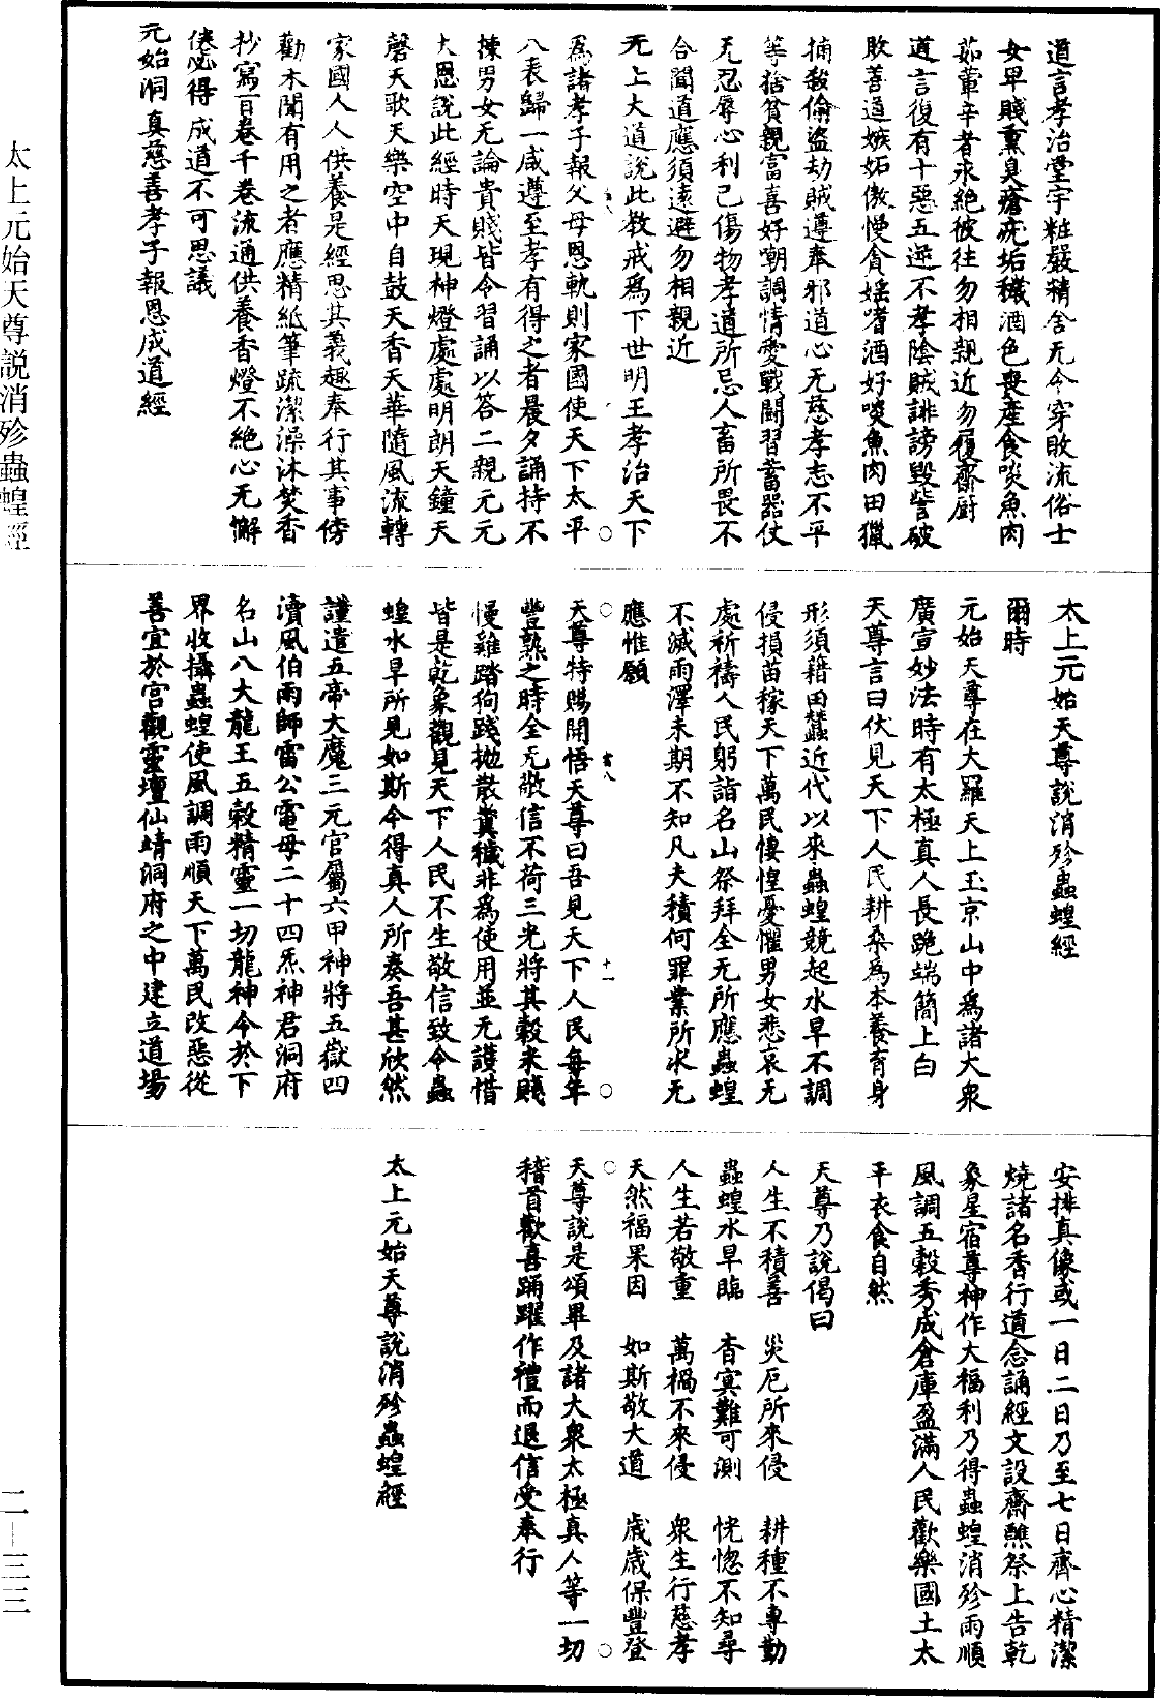 道言孝治堂宇粧嚴精舍无令穿敗流俗士
女卑賤熏臭瘡疣垢穢酒色喪產食啖魚肉
茹葷辛者永絕彼往勿相親近勿履齋廚
道言復有十惡五逆不孝陰賊誹謗毀訾破
敗善道嫉妬傲慢貪婬嗜酒好啖魚肉田獵
捕殺偷盜劫賊遵奉邪道心无慈孝志不平
等捨貧親富喜好嘲調情愛戰鬪習蓄器仗
无忍辱心利己傷物孝道所忌人畜所畏不
合聞道應須遠避勿相親近
无上大道說此教戒為下世明王孝治天下
為諸孝子報父母恩軌則家國使天下太平
八表歸一咸遵至孝有得之者晨夕誦持不
揀男女无論貴賤皆令習誦以答二親元元
大恩說此經時天現神燈處處明朗天鐘天
磬天歌天樂空中自鼓天香天華隨風流轉
家國人人供養是經思其義趣奉行其事傍
勸未聞有用之者應精紙筆疏潔澡沐焚香
抄寫百卷千卷流通供養香燈不絕心无懈
倦必得成道不可思議
元始洞真慈善孝子報恩成道經
太上元始天尊說消殄蟲蝗經
爾時
元始天尊在大羅天上玉京山中為諸大衆
廣宣妙法時有太極真人長跪端簡上白
天尊言曰伏見天下人民耕桑為本養育身
形須籍田蠶近代以來蟲蝗競起水旱不調
侵損苗稼天下萬民悽惶憂懼男女悲哀无
處祈禱人民躬詣名山祭拜全无所應蟲蝗
不滅雨澤未期不知凡夫積何罪業所求无
應惟願
天尊特賜開悟天尊曰吾見天下人民每年
豐熟之時全无敬信不荷三光將其穀米賤
慢雞踏狗踐拋散糞穢非為使用並无護惜
皆是乾象觀見天下人民不生敬信致令蟲
蝗水旱所見如斯今得真人所奏吾甚欣然
謹遣五帝大魔三元官屬六甲神將五嶽四
瀆風伯雨師雷公電母二十四炁神君洞府
名山八大龍王五穀精靈一切龍神今於下
界收攝蟲蝗使風調雨順天下萬民改惡從
善宜於宮觀靈壇仙靖洞府之中建立道場
安排真像或一日二日乃至七日齊心精潔
燒諸名香行道念誦經文設齋醮祭上告乾
象星宿尊神作大福利乃得蟲蝗消殄雨順
風調五穀秀成倉庫盈滿人民歡樂國土太
平衣食自然
天尊乃說偈曰
人生不積善　災厄所來侵　耕種不專勤
蟲蝗水旱臨　杳冥難可測　恍惚不知尋
人生若敬重　萬禍不來侵　衆生行慈孝
天然福果因　如斯敬大道　歲歲保豐登
天尊說是頌畢及諸大衆太極真人等一切
稽首歡喜踊躍作禮而退信受奉行
太上元始天尊說消殄蟲蝗經
太上元始天尊說消殄蟲蝗經
二—三三